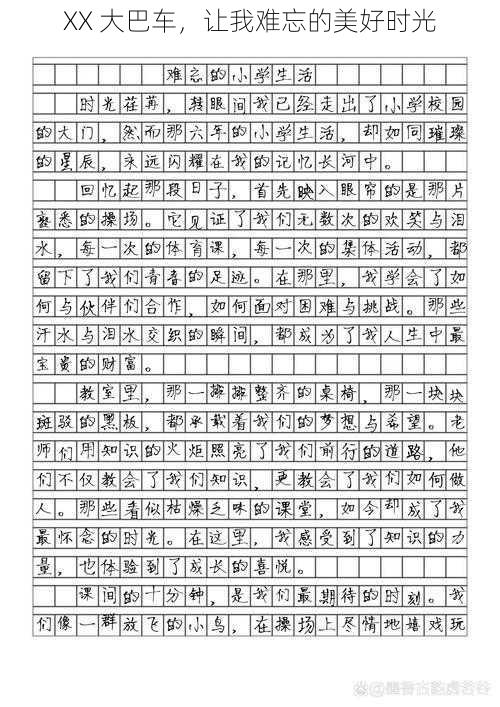 XX 大巴车，让我难忘的美好时光
难忘的小学生活
时光荏苒，转眼间我已经走出了小学校园
的大门，然而那六年的小学生活，却如同璀璨
的星辰，永远闪耀在我的记忆长河中。
回忆起那段日子，首先映入眼帘的是那片
熟悉的操场。它见证了我们无数次的欢笑与泪
水，每一次的体育课，每一次的集体活动，都
留下了我们青春的足迹。在那里，我学会了如
何与伙伴们合作，如何面对困难与挑战。那些
汗水与泪水交织的瞬间，都成为了我人生中最
宝贵的财富。
教室里，那一排排整齐的桌椅，那一块块
斑驳的黑板，都承载着我们的梦想与希望。老
师们用知识的火炬照亮了我们前行的道路，他
们不仅教会了我们知识，更教会了我们如何做
人。那些看似枯燥乏味的课堂，如今却成了我
最怀念的时光。在这里，我感受到了知识的力
量，也体验到了成长的喜悦。
课间的十分钟，是我们最期待的时刻。我
们像一群放飞的小鸟，在操场上尽情地嬉戏玩